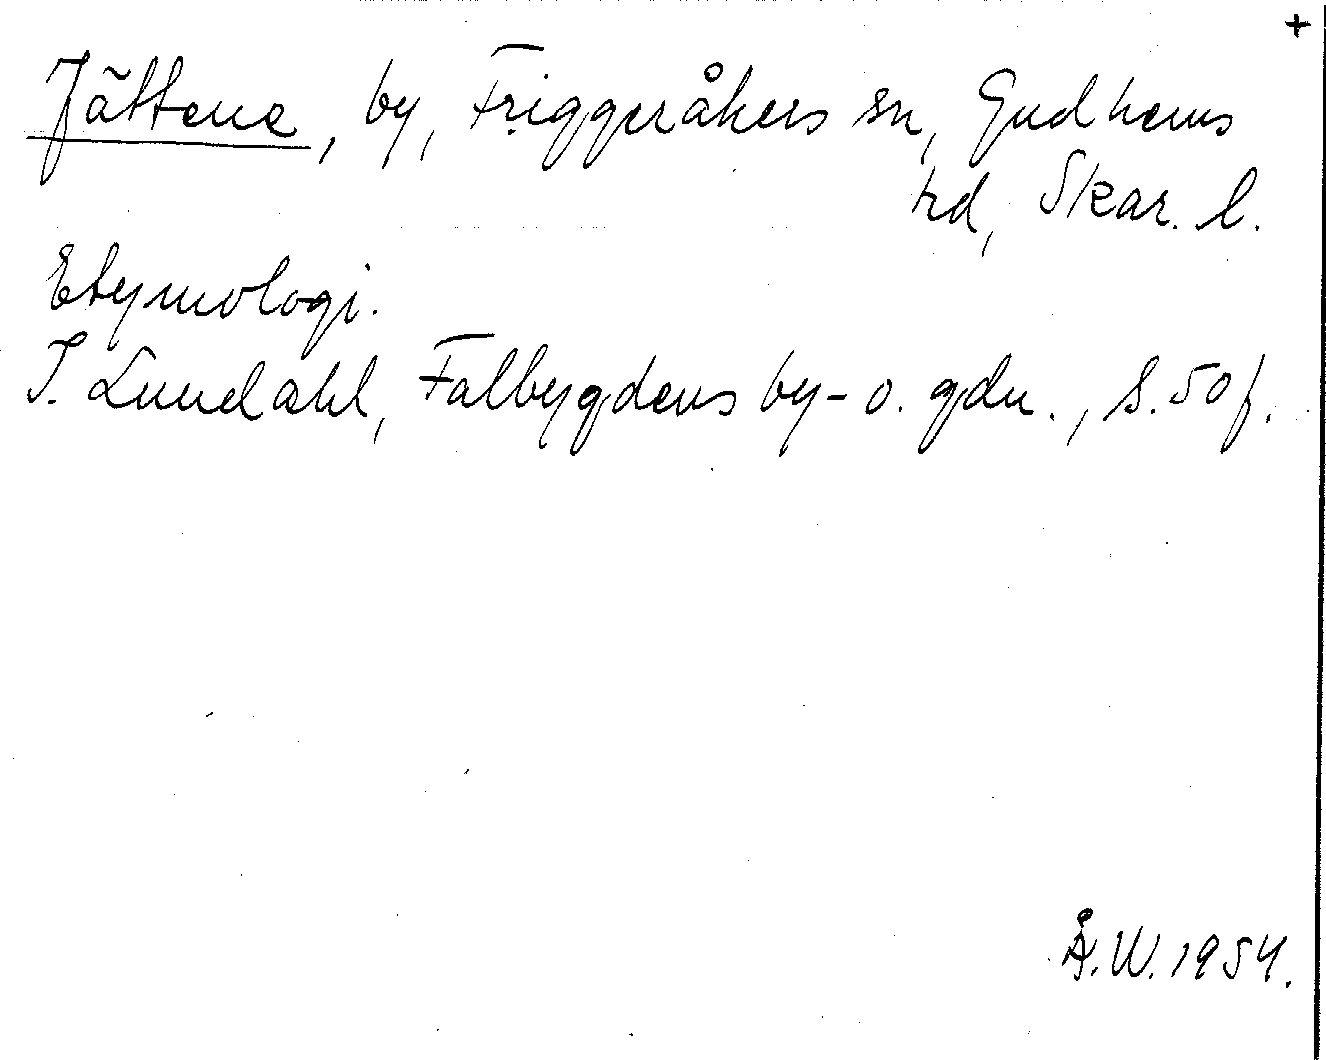 +
Jättene, by, Friggeråkers sn, Gudhems
hd, Skar. l.
Etymologi.
I. Lundahl, Falbygdens by- o. gdn., s. 50 f.
Å.W. 1954.